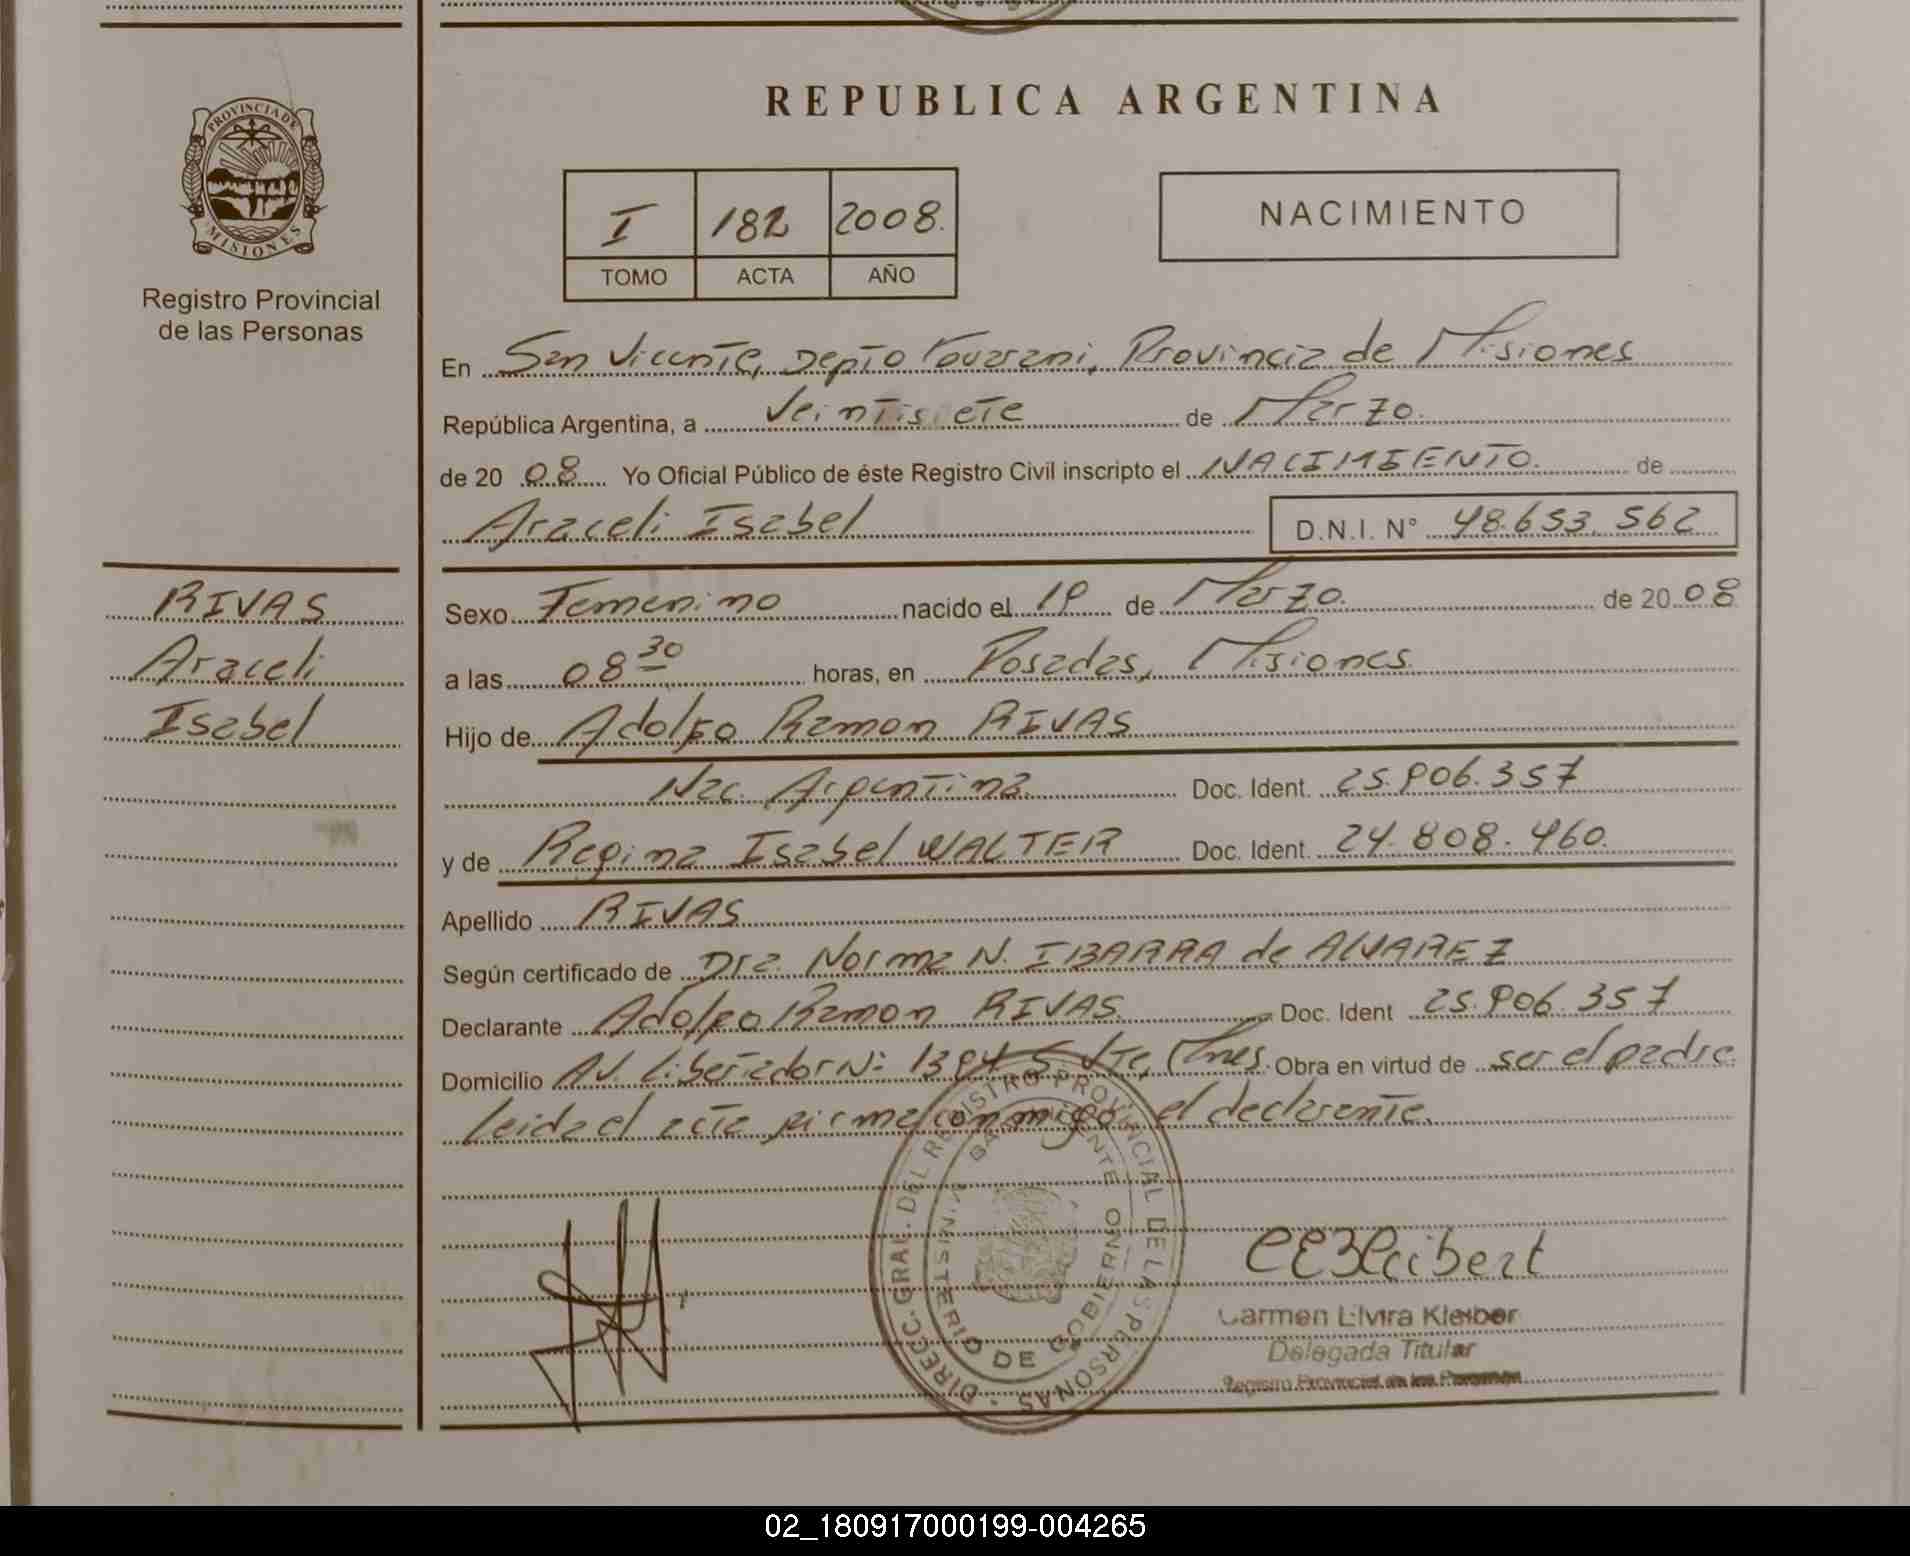 REPUBLICA ARGENTINA
PROVINCIA DE
MISIONES
Registro Provincial
de las Personas
I 182 2008.
TOMO ACTA AÑO
NACIMIENTO
En San Vicente, Depto Guarani, Provincia de Misiones
República Argentina, a Veintisiete de Marzo.
de 20 08 Yo Oficial Público de éste Registro Civil inscripto el NACIMIENTO. de
Araceli Isabel D.N.I. N° 48.653.562
RIVAS
Araceli
Isabel
Sexo Femenino nacido el 19 de Marzo. de 20 08
a las 08 30 horas, en Posadas, Misiones.
Hijo de Adolfo Ramon RIVAS
Nac. Argentina. Doc. Ident. 25.906.357
y de Regina Isabel WALTER Doc. Ident. 24.808.460.
Apellido RIVAS
Según certificado de Dra. Norma N. IBARRA de ALVAREZ
Declarante Adolfo Ramon RIVAS. Doc. Ident 25.906.357
Domicilio Av. Libertador N: 1394 S. Vte, Mnes. Obra en virtud de ser el padre
Leida el acta firma conmigo el declarante.
DIRECC. GRAL. DEL REGISTRO PROVINCIAL DE LAS PERSONAS
MINISTERIO DE GOBIERNO
Carmen Elvira Kleiber
Delegada Titular
Registro Provincial de las Personas
02_180917000199-004265